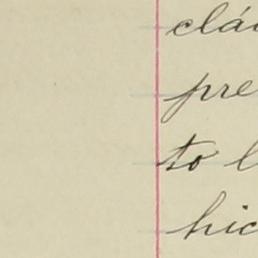 clá
pre
to l
hic